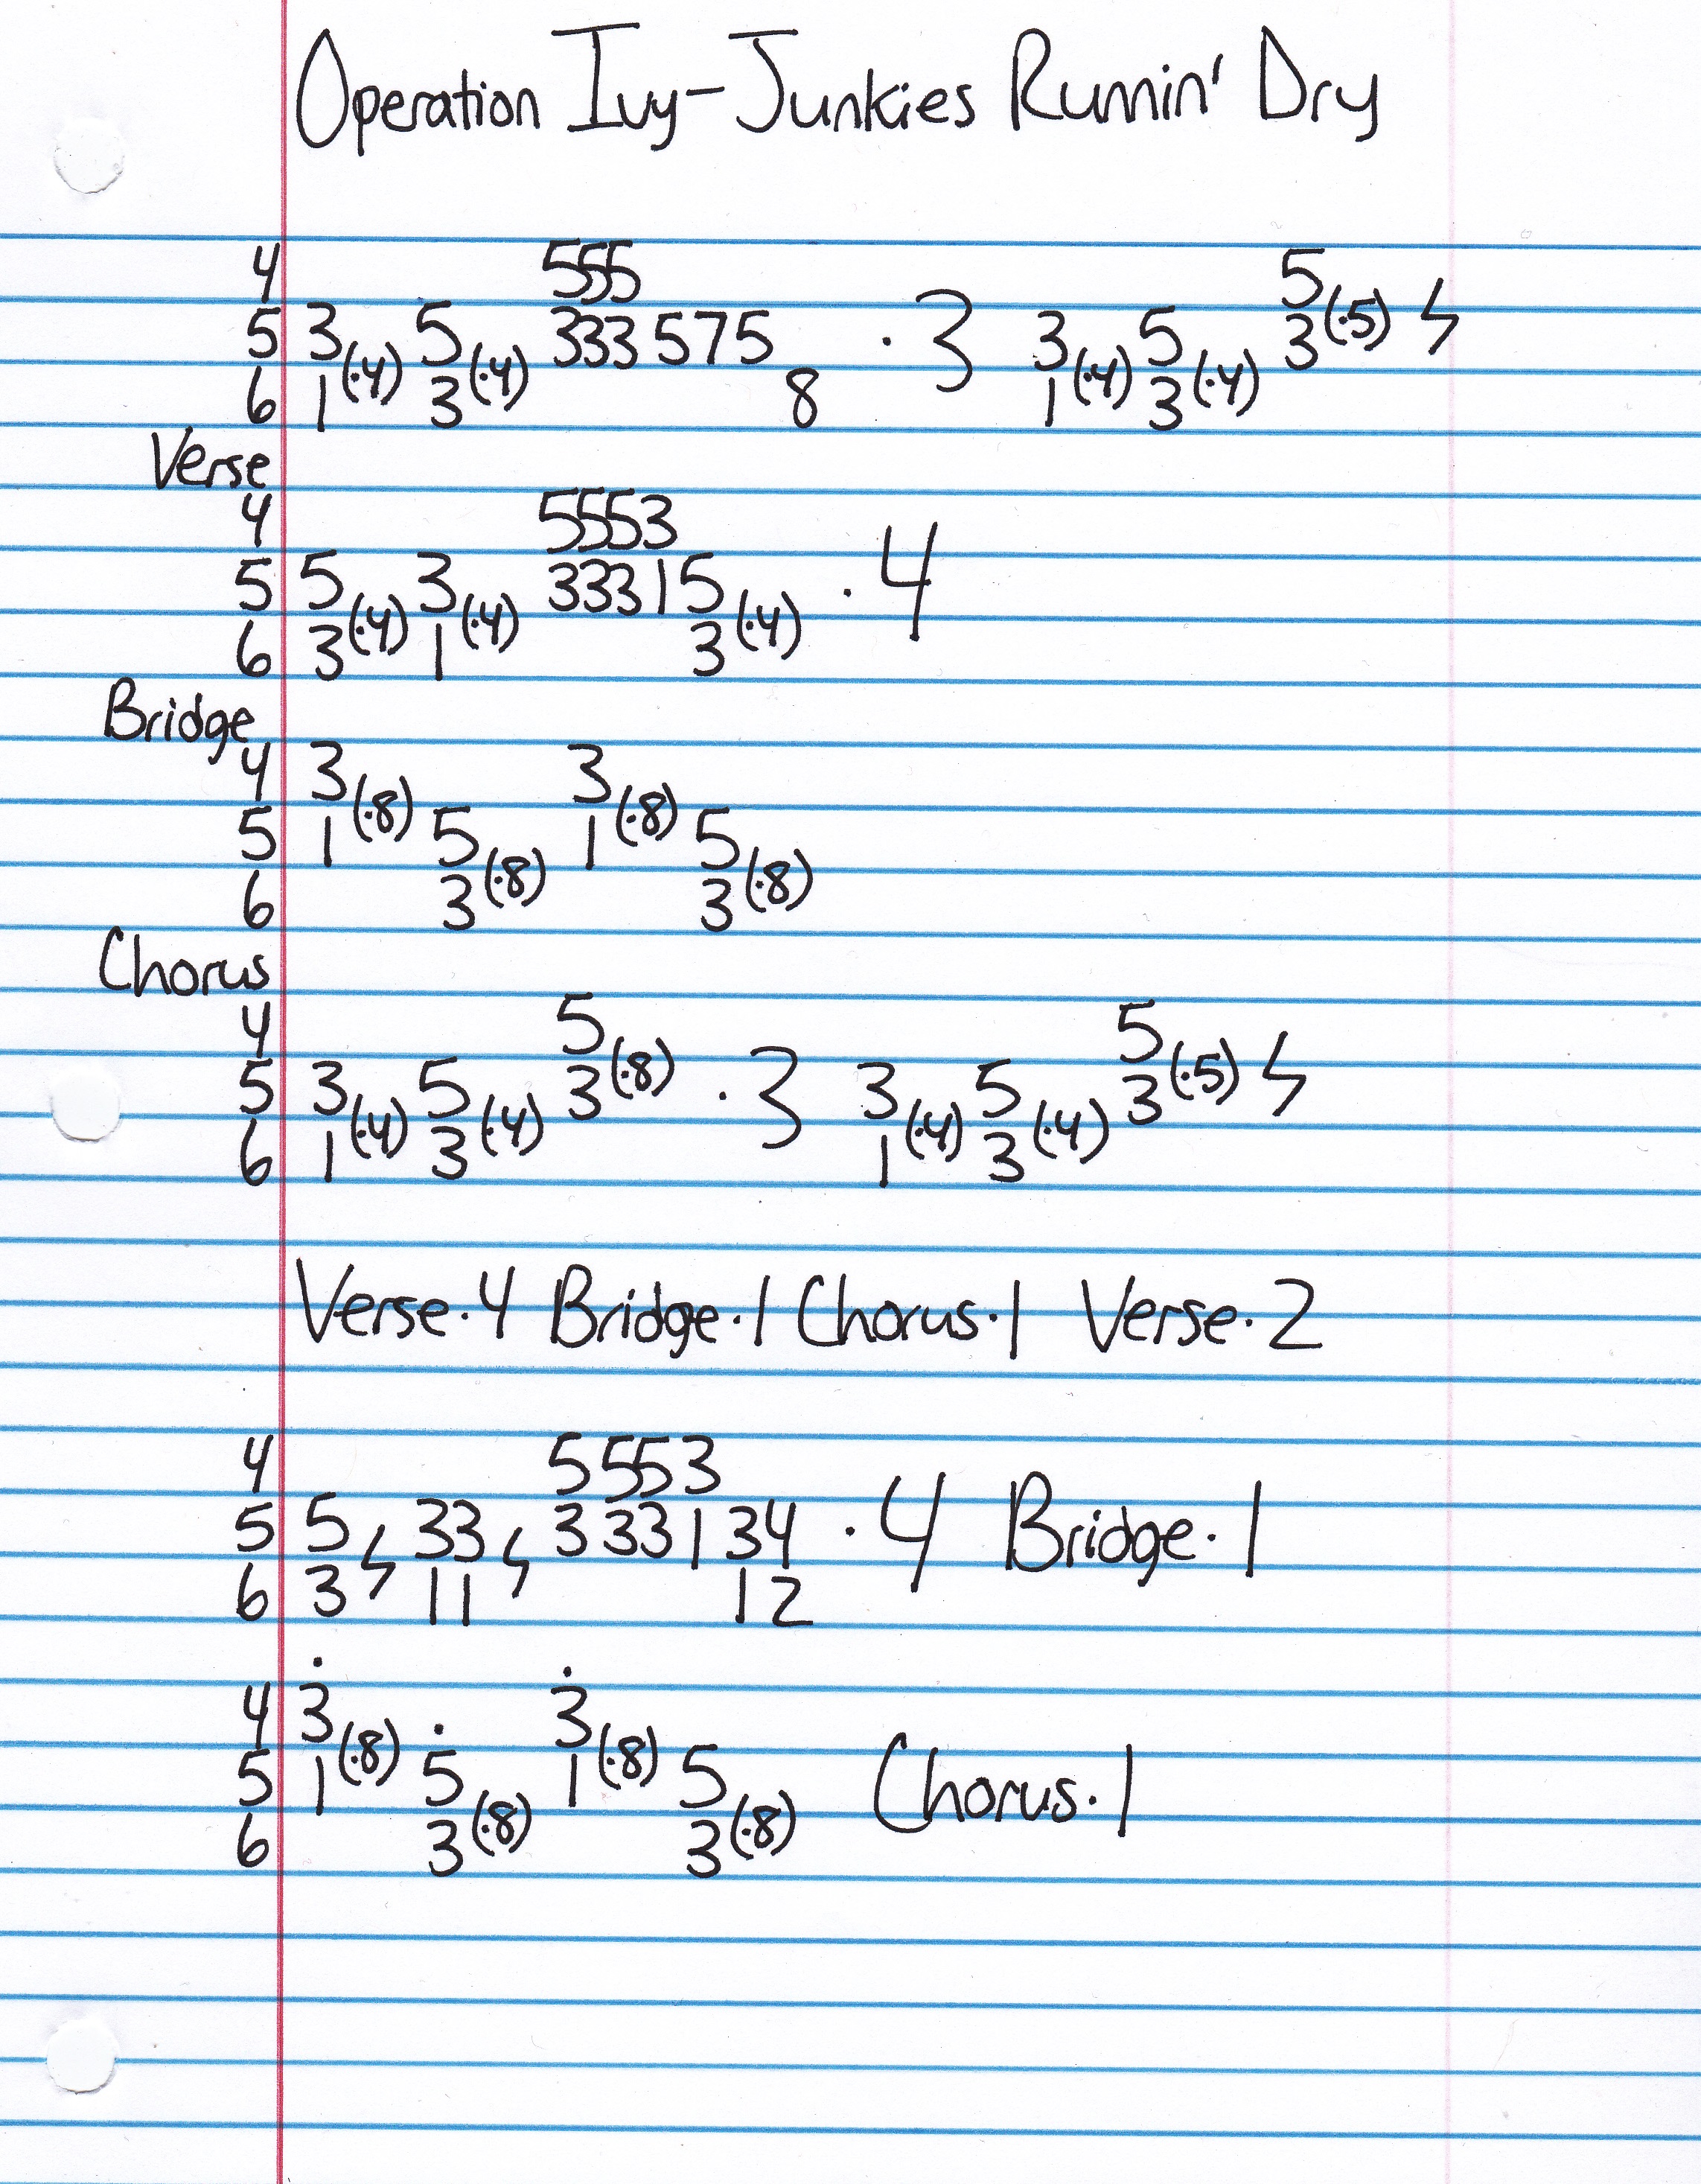 Operation Ivy-Junkies Runnin' Dry
4 555
5 3(·4) 5(·4) 333 575 · 3 3(·4) 5(·4) 5(·5) ϟ
6 1 3 8 1 3 3
Verse
4 5553
5 5(·4) 3(·4) 33315(·4) · 4
6 3 1 3
Bridge
4 3(·8) 3(·8)
5 1 5(·8) 1 5(·8)
6 3 3
Chorus
4 5(·8) 5(·5) ϟ
5 3(·4) 5(·4) 3 · 3 3(·4) 5(·4) 3
6 1 3 1 3
Verse·4 Bridge·1 Chorus·1 Verse·2
4 5 553
5 5 ϟ 33 ϟ 3 33 1 34 · 4 Bridge·1
6 3 11 12
4 3(·8) 3(·8)
5 1 5(·8) 1 5(·8) Chorus·1
6 3 3